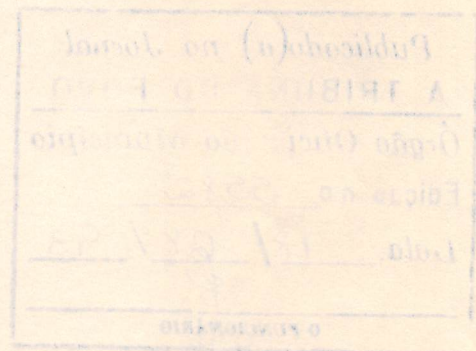 Publicado(a) no Jornal
A TRIBUNA DO POVO
Órgão Ofici do Município
Edição no
Data / /
O FUNCIONÁRIO